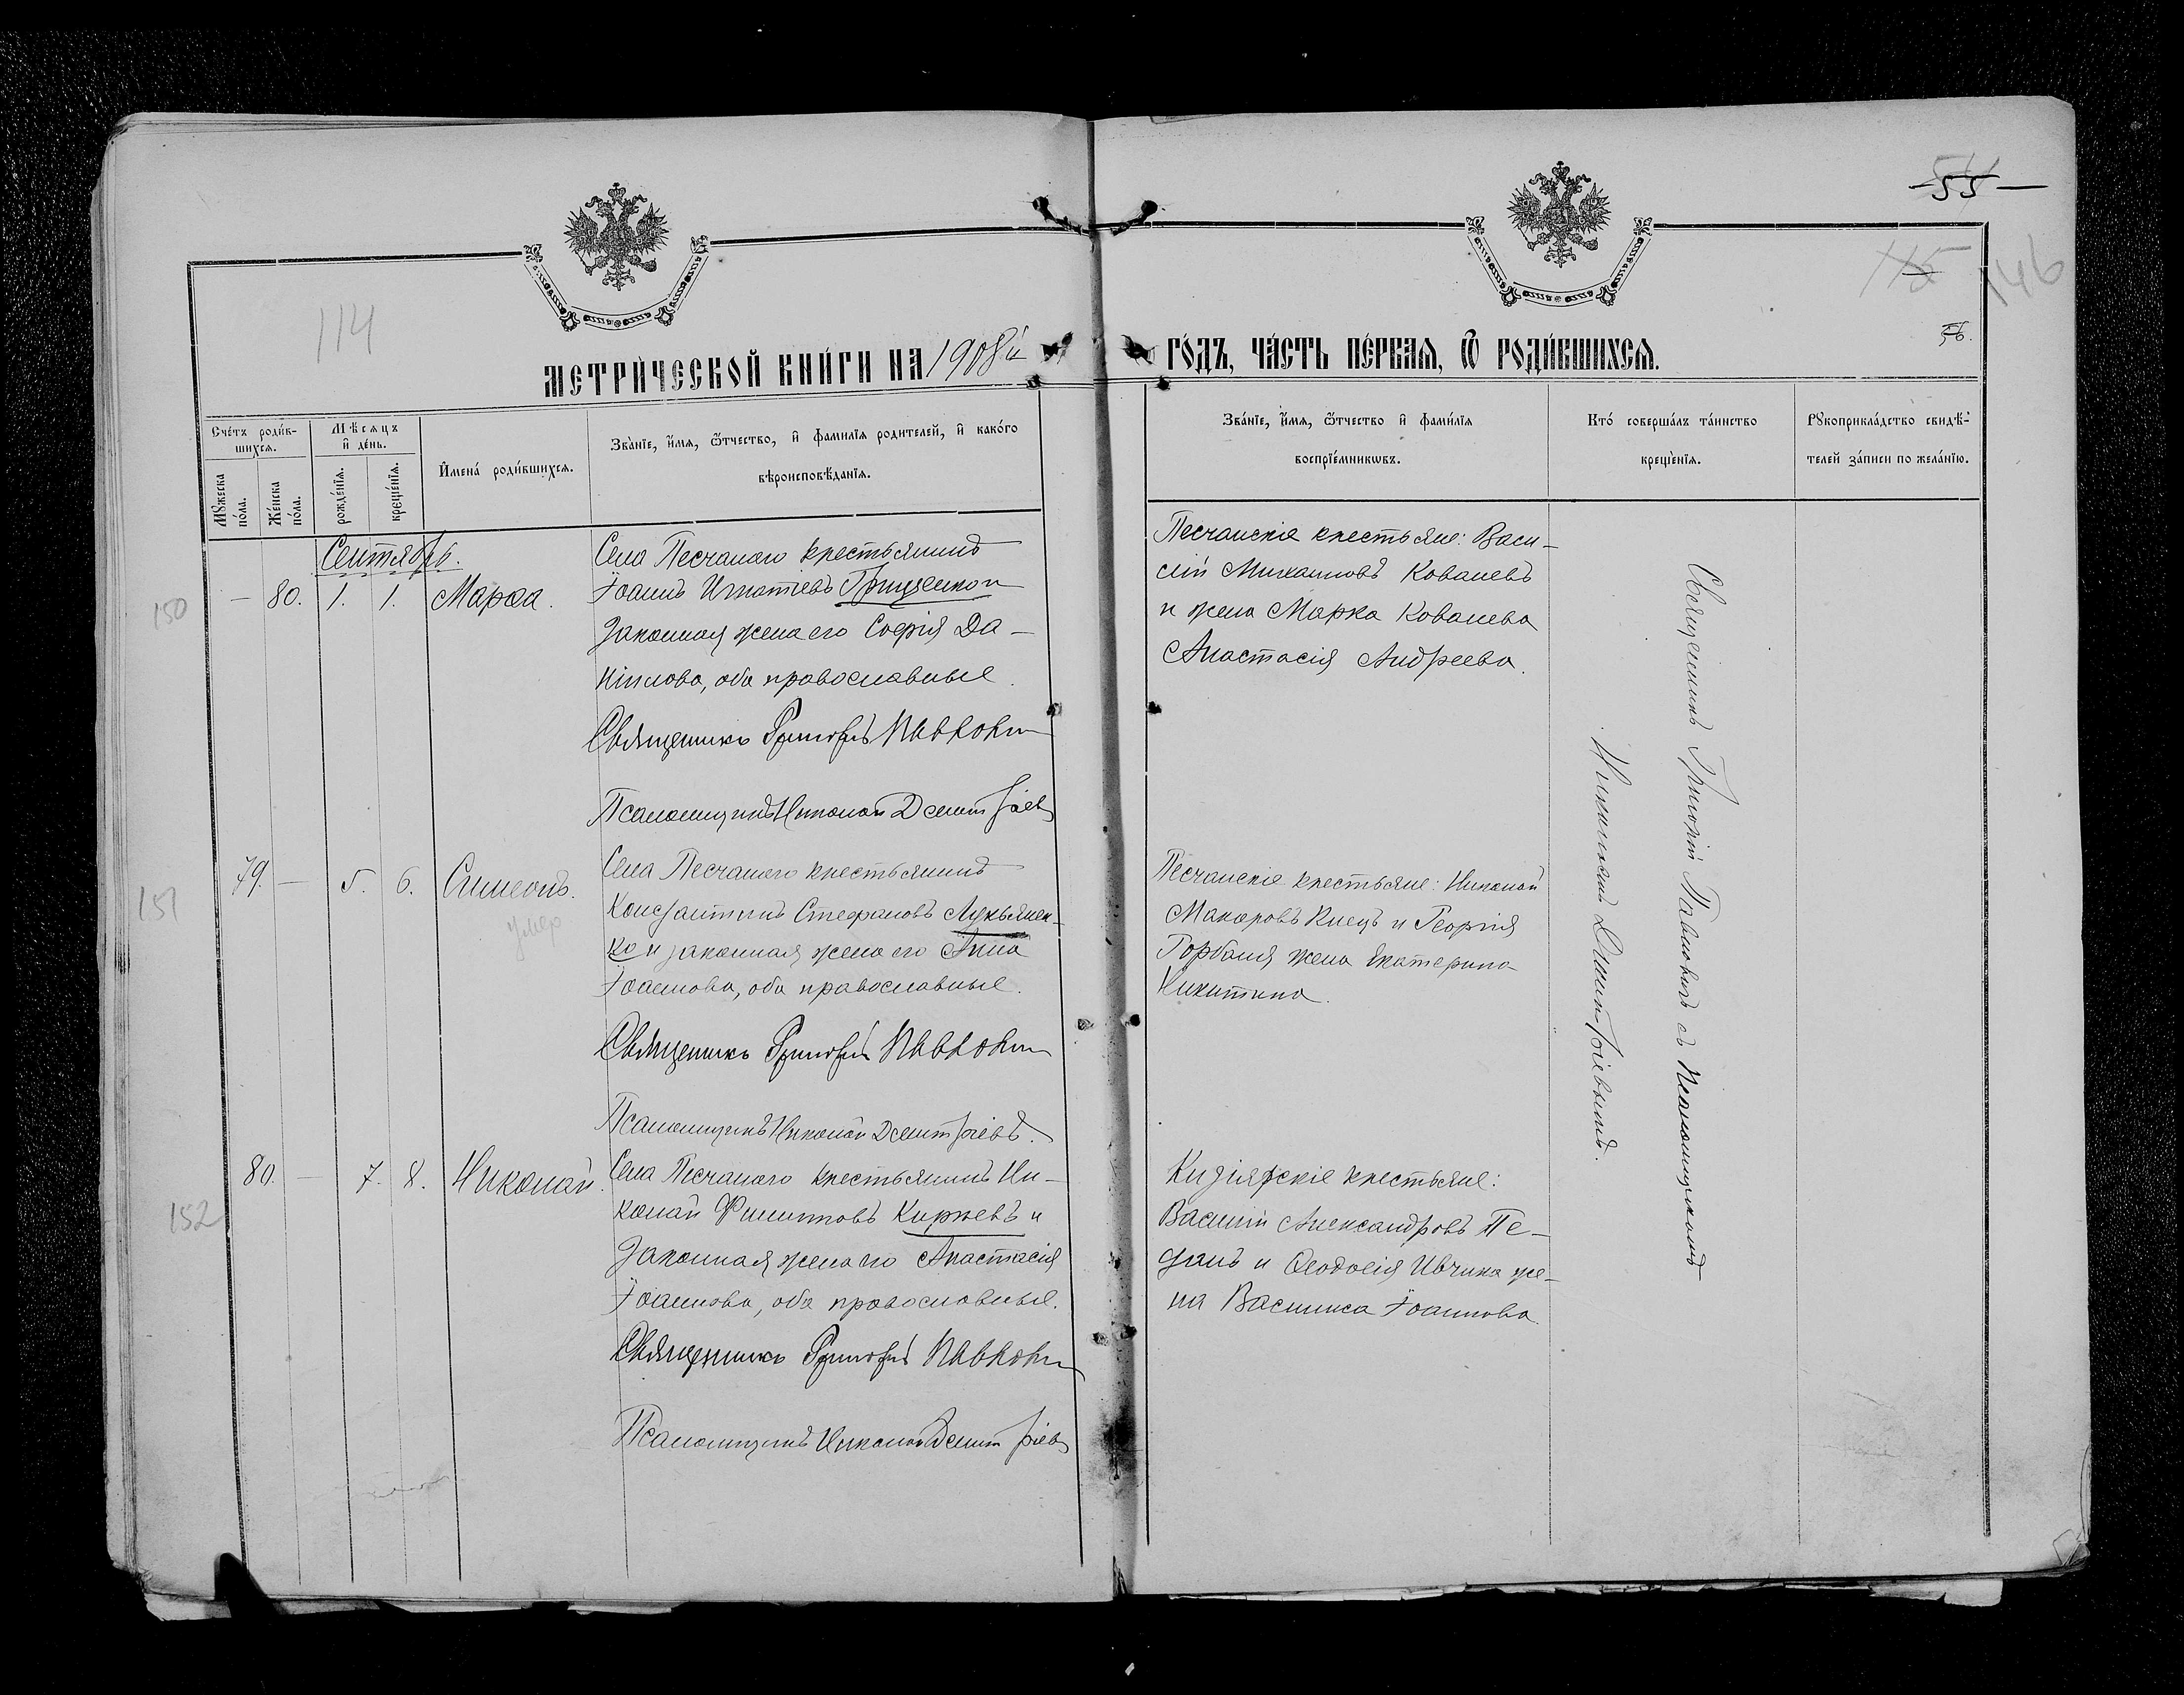 55
115
146
56.
114
МЕТРИЧЕСКОЙ КНИГИ НА 1908й
ГОДЪ, ЧАСТЬ ПЕРВАЯ, Ѿ РОДИВШИХСЯ.
Счетъ родив-
шихся.
Мѣсяцъ
и день.
Мужеска
пола.
Женска
пола.
рожденїя.
крещенїя.
Имена родившихся.
Званїе, имя, ѿтчество, и фамилїя родителей, и какого
вѣроисповѣданїя.
Званїе, имя, ѿтчество и фамилїя
воспрїемникѡвъ.
Кто совершалъ таинство
крещенїя.
Рукоприкладство свидѣ-
телей записи по желанїю.
Сентябрь.
150
— 80. 1. 1. Марѳа.
Села Песчанаго крестьянинъ
Іоаннъ Игнатіевъ Грищенко и
законная жена его Софія Да-
ніилова, оба православные.
Священникъ Григорій Павлович
Псаломщикъ Николай Демитріевъ
Песчанскіе крестьяне: Васи-
лій Михаиловъ Ковалевъ
и жена Марка Ковалева
Анастасія Андреева.
151
79. — 5. 6. Симеонъ.
умер
Села Песчанаго крестьянинъ
Константинъ Стефановъ Лукьянен-
ко и законная жена его Анна
Іоаннова, оба православные.
Священникъ Григорій Павлович
Псаломщикъ Николай Демитріевъ.
Песчанскіе крестьяне: Николай
Макаровъ Кнецъ и Георгія
Горбаня жена Екатерина
Никитина.
152
80. — 7. 8. Николай.
Села Песчанаго крестьянинъ Ни-
колай Филипповъ Киржевъ и
законная жена его Анастасія
Іоаннова, оба православные.
Священникъ Григорій Павлович
Псаломщикъ Николай Демитріевъ
Кизіярскіе крестьяне:
Василій Александровъ Пе-
данъ и Ѳеодосія Ивчика же-
на Василиса Іоаннова.
Священникъ Григорій Павловичъ съ псаломщикомъ
Николаемъ Димитріевымъ.